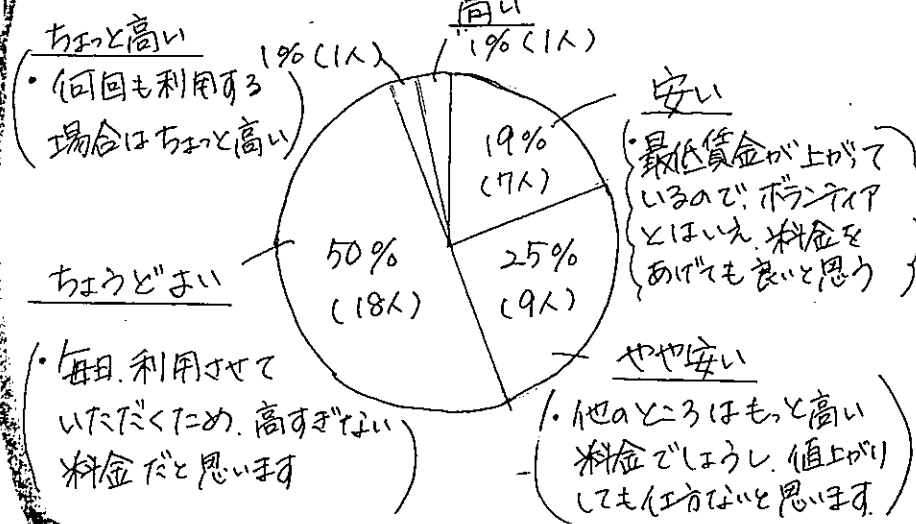 ちょっと高い
・何回も利用する
場合はちょっと高い
1%(1人)
高い
1%(1人)
安い
19%
(7人)
・最低賃金が上がって
いるので、ボランティア
とはいえ、料金を
あげても良いと思う
50%
(18人)
25%
(9人)
ちょうどよい
・毎日、利用させて
いただくため、高すぎない
料金だと思います
やや安い
・他のところはもっと高い
料金でしょうし、値上がり
しても仕方ないと思います。